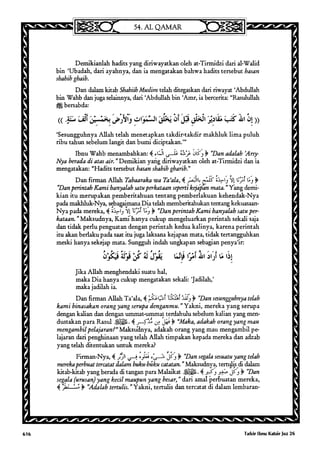 54. AL QAMAR
Demikianlah hadits yang diriwayatkan oleh at-Tirmidzi dari al-Walid
bin 'Ubadah, dari ayahnya, dan ia mengatakan bahwa hadits tersebut hasan
shahih gharib.
Dan dalam kitab Shahiih Muslim telah ditegaskan dari riwayat 'Abdullah
bin Wahb dan juga selainnya, dari 'Abdullah bin 'Amr, ia bercerita: "Rasulullah
ﷺ bersabda:
(( إِنَّ اللهَ كَتَبَ مَقَادِيْرَ الْخَلْقِ قَبْلَ أَنْ يَخْلُقَ السَّمَوَاتِ وَاْلأَرْضَ بِخَمْسِيْنَ أَلْفَ سَنَةٍ ))
'Sesungguhnya Allah telah menetapkan takdir-takdir makhluk lima puluh
ribu tahun sebelum langit dan bumi diciptakan.'"
Ibnu Wahb menambahkan: ﴿ وَكَانَ عَرْشُهُ عَلَى الْمَاءِ ﴾ "Dan adalah 'Arsy-
Nya berada di atas air." Demikian yang diriwayatkan oleh at-Tirmidzi dan ia
mengatakan: "Hadits tersebut hasan shahih gharib."
Dan firman Allah Tabaaraka wa Ta'ala, ﴿ وَمَا أَمْرُنَا إِلاَّ وَاحِدَةٌ كَلَمْحٍ بِالْبَصَرِ ﴾
"Dan perintah Kami hanyalah satu perkataan seperti kejapan mata." Yang demi-
kian itu merupakan pemberitahuan tentang pemberlakuan kehendak-Nya
pada makhluk-Nya, sebagaimana Dia telah memberitahukan tentang kekuasaan-
Nya pada mereka, ﴿ وَمَا أَمْرُنَا إِلاَّ وَاحِدَةٌ ﴾ "Dan perintah Kami hanyalah satu per-
kataan." Maksudnya, Kami hanya cukup mengeluarkan perintah sekali saja
dan tidak perlu penguatan dengan perintah kedua kalinya, karena perintah
itu akan berlaku pada saat itu juga laksana kejapan mata, tidak tertangguhkan
meski hanya sekejap mata. Sungguh indah ungkapan sebagian penya'ir:
إِذَا مَا أَرَادَ اللهُ أَمْرًا فَإِنَّمَا يَقُوْلُ لَهُ كُنْ قَوْلَةً فَيَكُوْنُ
Jika Allah menghendaki suatu hal,
maka Dia hanya cukup mengatakan sekali: 'Jadilah,'
maka jadilah ia.
Dan firman Allah Ta'ala, ﴿ وَلَقَدْ أَهْلَكْنَا أَشْيَاعَكُمْ ﴾ "Dan sesungguhnya telah
kami binasakan orang yang serupa denganmu." Yakni, mereka yang serupa
dengan kalian dan dengan ummat-ummat terdahulu sebelum kalian yang men-
dustakan para Rasul ﴿ فَهَلْ مِنْ مُدَّكِرٍ ﴾ "Maka, adakah orang yang mau
mengambil pelajaran?" Maksudnya, adakah orang yang mau mengambil pe-
lajaran dari penghinaan yang telah Allah timpakan kepada mereka dan adzab
yang telah ditentukan untuk mereka?
Firman-Nya, ﴿ وَكُلُّ شَيْءٍ فَعَلُوهُ فِي الزُّبُرِ ﴾ "Dan segala sesuatu yang telah
mereka perbuat tercatat dalam buku-buku catatan." Maksudnya, tertulis di dalam
kitab-kitab yang berada di tangan para Malaikat ﴿ وَكُلُّ صَغِيرٍ وَكَبِيرٍ ﴾ "Dan
segala (urusan) yang kecil maupun yang besar," dari amal perbuatan mereka,
﴿ مُسْتَطَرٌ ﴾ "Adalah tertulis." Yakni, tertulis dan tercatat di dalam lembaran-
616
Tafsir Ibnu Katsir Juz 26